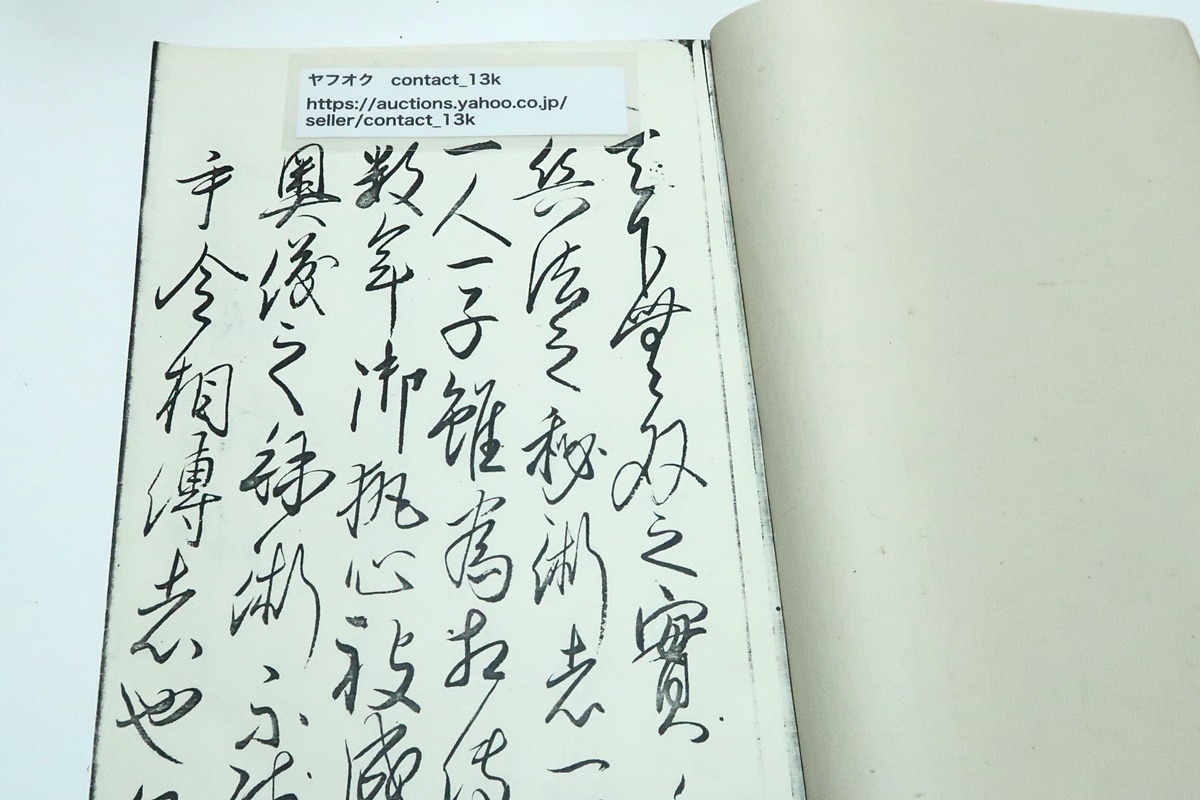 ヤフオク contact_13k
https://auctions.yahoo.co.jp/
seller/contact_13k
天下無双之實
兵法之秘術者一
一人一子雖為相傳
数年御執心被成
奥儀之秘術不残
手令相傳者也